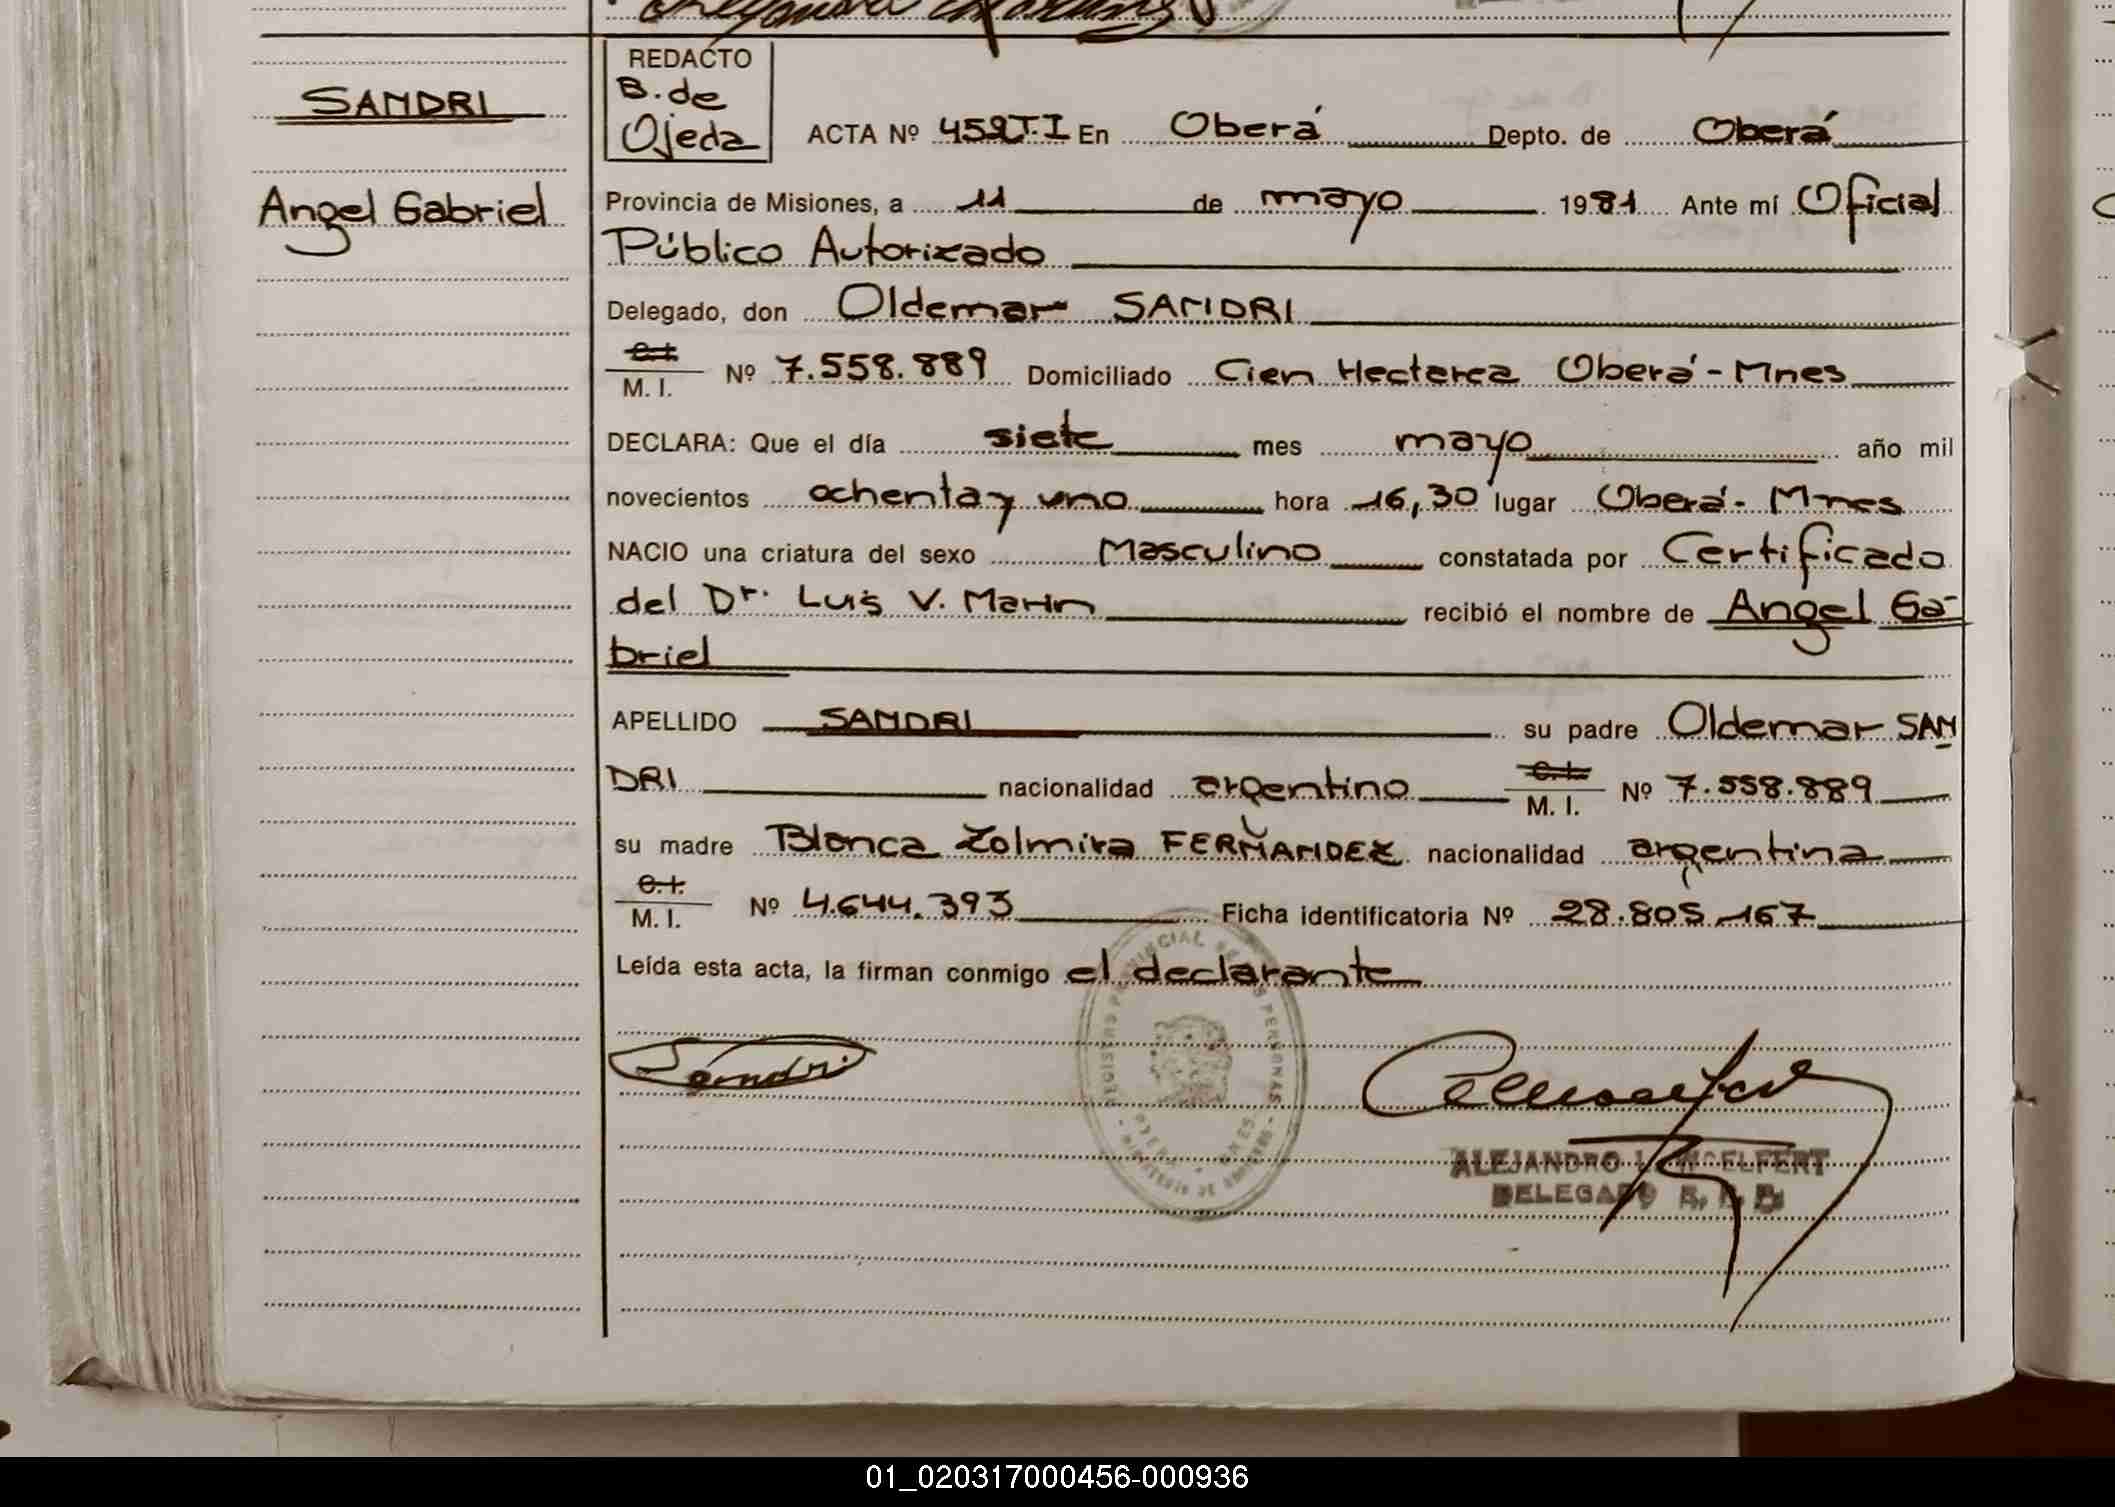 REDACTO
B. de
Ojeda
SANDRI
Angel Gabriel
ACTA Nº 459 T.I En Oberá Depto. de Oberá
Provincia de Misiones, a 11 de mayo 1981 Ante mí Oficial
Público Autorizado
Delegado, don Oldemar SANDRI
C.I. M. I. Nº 7.558.889 Domiciliado Cien Hectarea Oberá - Mnes
DECLARA: Que el día siete mes mayo año mil
novecientos ochenta y uno hora 16,30 lugar Oberá - Mnes
NACIO una criatura del sexo Masculino constatada por Certificado
del Dr. Luis V. Marin recibió el nombre de Angel Ga-
briel
APELLIDO SANDRI su padre Oldemar SAN
DRI nacionalidad argentino C.I. M. I. Nº 7.558.889
su madre Blanca Zolmira FERNANDEZ nacionalidad argentina
C.I. M. I. Nº 4.644.393 Ficha identificatoria Nº 28.805.167
Leída esta acta, la firman conmigo el declarante
Sandri
ALEJANDRO
DELEGADO
01_020317000456-000936